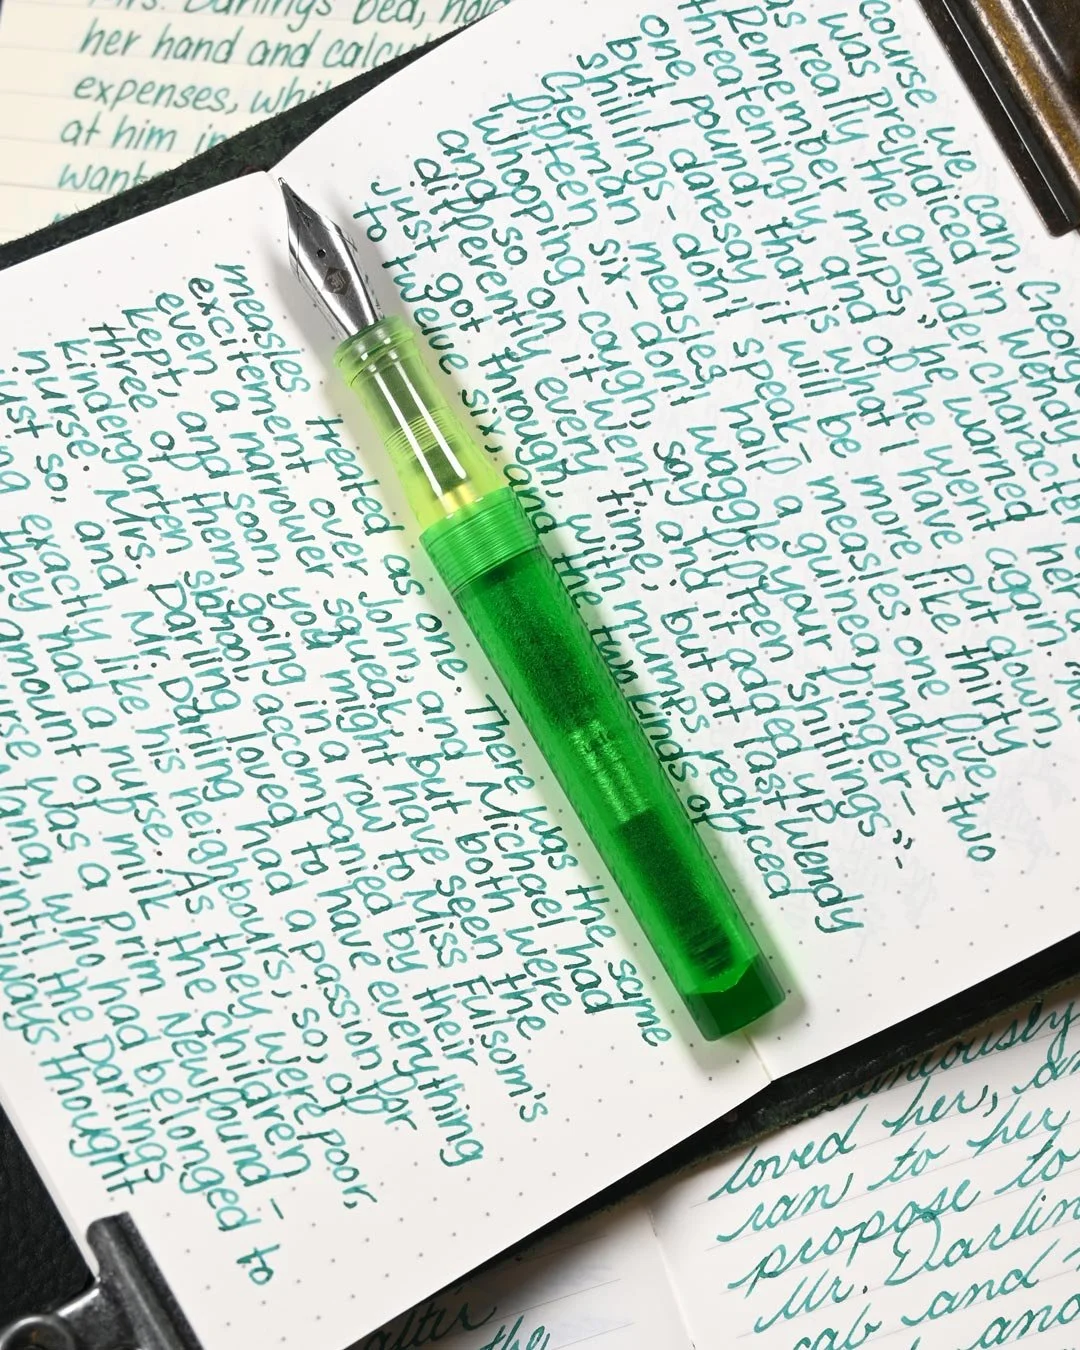 Mrs. Darling's bed, hold
her hand and calcu
expenses, whil
at him in
want
course we can, Georg
was prejudiced in Wendy
as really the grander characte
Remember mumps," he warned her a
threateningly, and off he went again. "M
one pound, that is what I have put down,
but I daresay it will be more like thirty
shillings - don't speak - measles one five,
German measles half a guinea, makes two
fifteen six - don't waggle your finger -
whooping-cough, say fifteen shillings" -
and so on it went, and it added up
differently every time, but at last Wendy
just got through, with mumps reduced
to twelve six, and the two kinds of
measles treated as one. There was the same
excitement over John, and Michael had
even a narrower squeak, but both were
kept, and soon, you might have seen the
three of them going in a row to Miss Fulsom's
kindergarten school, accompanied by their
nurse. Mrs. Darling loved to have everything
just so, and Mr. Darling had a passion for
ng exactly like his neighbours; so, of
they had a nurse. As they were poor,
amount of milk the children
urse was a prim Newfound-
ana, who had belonged to
until the Darlings
ways thought
loved her, an
ran to her
propose to
Mr. Darlin
cab and
and
the